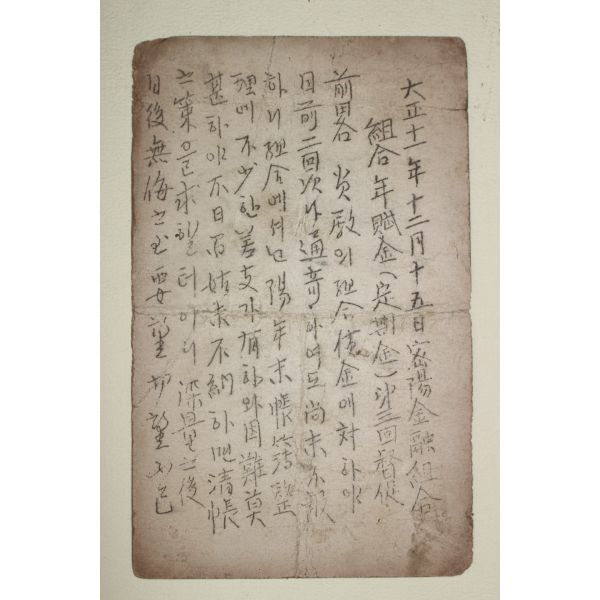 大正十一年十二月十五日 密陽金融組合
組合年賦金(定期金)第三回督促
前畧 貴殿의組合債金에対하야
日前二回次나通奇하여도尚未不報
하니組合에서난陽年末帳簿整
理에不少한差支가有하와困難莫
甚하야不日間姑未不納하면清帳
之策을求할터이니深量之後
日後無悔之至要望